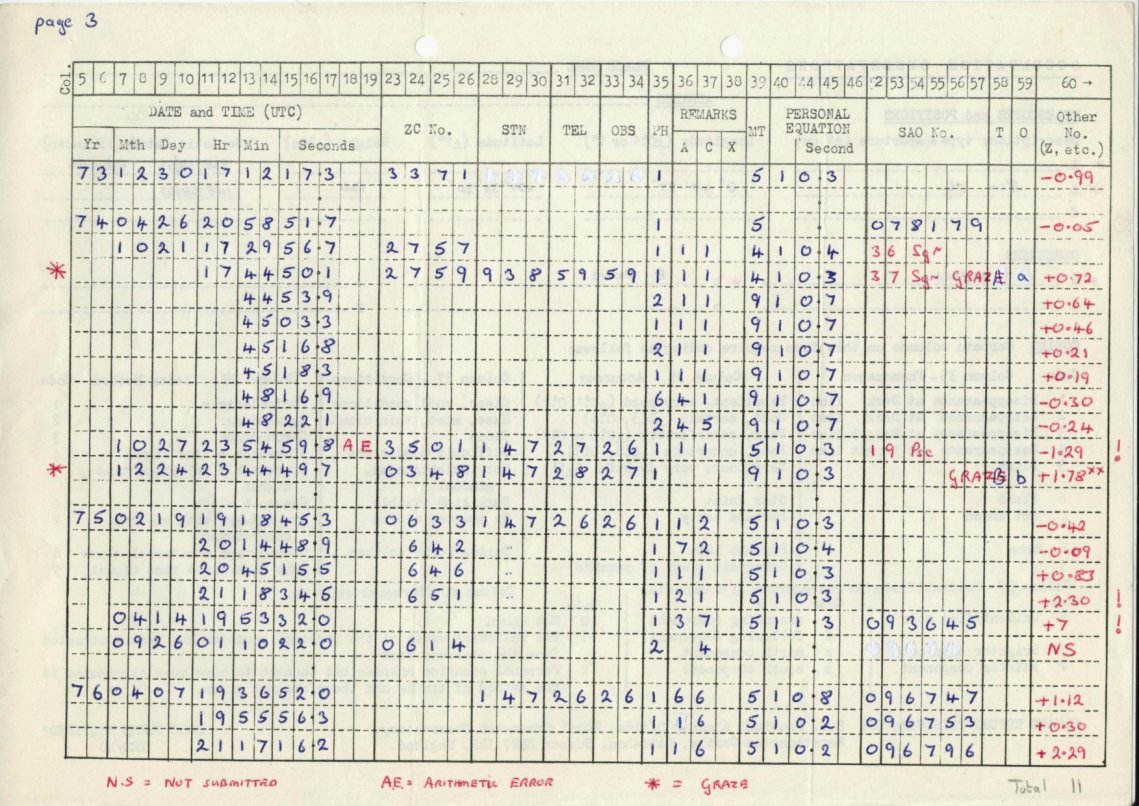 page 3
Col. 5 6 7 8 9 10 11 12 13 14 15 16 17 18 19 23 24 25 26 28 29 30 31 32 33 34 35 36 37 38 39 40 44 45 46 52 53 54 55 56 57 58 59 60 →
DATE and TIME (UTC) ZC No. STN TEL OBS PH REMARKS MT PERSONAL EQUATION SAO No. T O Other No. (Z, etc.)
Yr Mth Day Hr Min Seconds A C X Second
7 3 1 2 3 0 1 7 1 2 1 7·3 3 3 7 1 1 5 1 0·3 -0·99
7 4 0 4 2 6 2 0 5 8 5 1·7 1 5 0 7 8 1 7 9 -0·05
1 0 2 1 1 7 2 9 5 6·7 2 7 5 7 1 1 1 4 1 0·4 36 Sgr
* 1 7 4 4 5 0·1 2 7 5 9 9 3 8 5 9 5 9 1 1 1 4 1 0·3 37 Sgr GRAZE a +0·72
4 4 5 3·9 2 1 1 9 1 0·7 +0·64
4 5 0 3·3 1 1 1 9 1 0·7 +0·46
4 5 1 6·8 2 1 1 9 1 0·7 +0·21
4 5 1 8·3 1 1 1 9 1 0·7 +0·19
4 8 1 6·9 6 4 1 9 1 0·7 -0·30
4 8 2 2·1 2 4 5 9 1 0·7 -0·24
1 0 2 7 2 3 5 4 5 9·8 A E 3 5 0 1 1 4 7 2 7 2 6 1 1 1 5 1 0·3 19 Psc -1·29 !
* 1 2 2 4 2 3 4 4 4 9·7 0 3 4 8 1 4 7 2 8 2 7 1 9 1 0·3 GRAZE b +1·78 xx
7 5 0 2 1 9 1 9 1 8 4 5·3 0 6 3 3 1 4 7 2 6 2 6 1 1 2 5 1 0·3 -0·42
2 0 1 4 4 8·9 6 4 2 1 7 2 5 1 0·4 -0·09
2 0 4 5 1 5·5 6 4 6 1 1 1 5 1 0·3 +0·83
2 1 1 8 3 4·5 6 5 1 1 2 1 5 1 0·3 +2·30 !
0 4 1 4 1 9 5 3 3 2·0 1 3 7 5 1 1·3 0 9 3 6 4 5 +7 !
0 9 2 6 0 1 1 0 2 2·0 0 6 1 4 2 4 NS
7 6 0 4 0 7 1 9 3 6 5 2·0 1 4 7 2 6 2 6 1 6 6 5 1 0·8 0 9 6 7 4 7 +1·12
1 9 5 5 5 6·3 1 1 6 5 1 0·2 0 9 6 7 5 3 +0·30
2 1 1 7 1 6·2 1 1 6 5 1 0·2 0 9 6 7 9 6 +2·29
N.S = NOT SUBMITTED AE = ARITHMETIC ERROR * = GRAZE Total 11